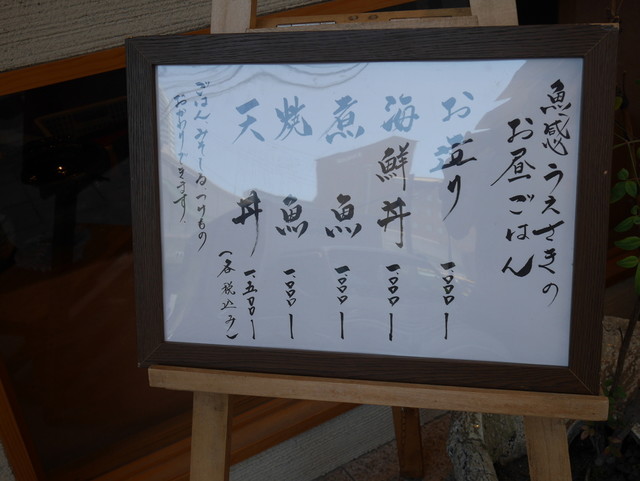 魚感うえさきの
お昼ごはん
お造り 一、〇〇〇ー
海鮮丼 一、〇〇〇ー
煮魚 一、〇〇〇ー
焼魚 一、〇〇〇ー
天丼 一、五〇〇ー
(各税込み)
ごはん みそしる つけもの
おかわりできます。